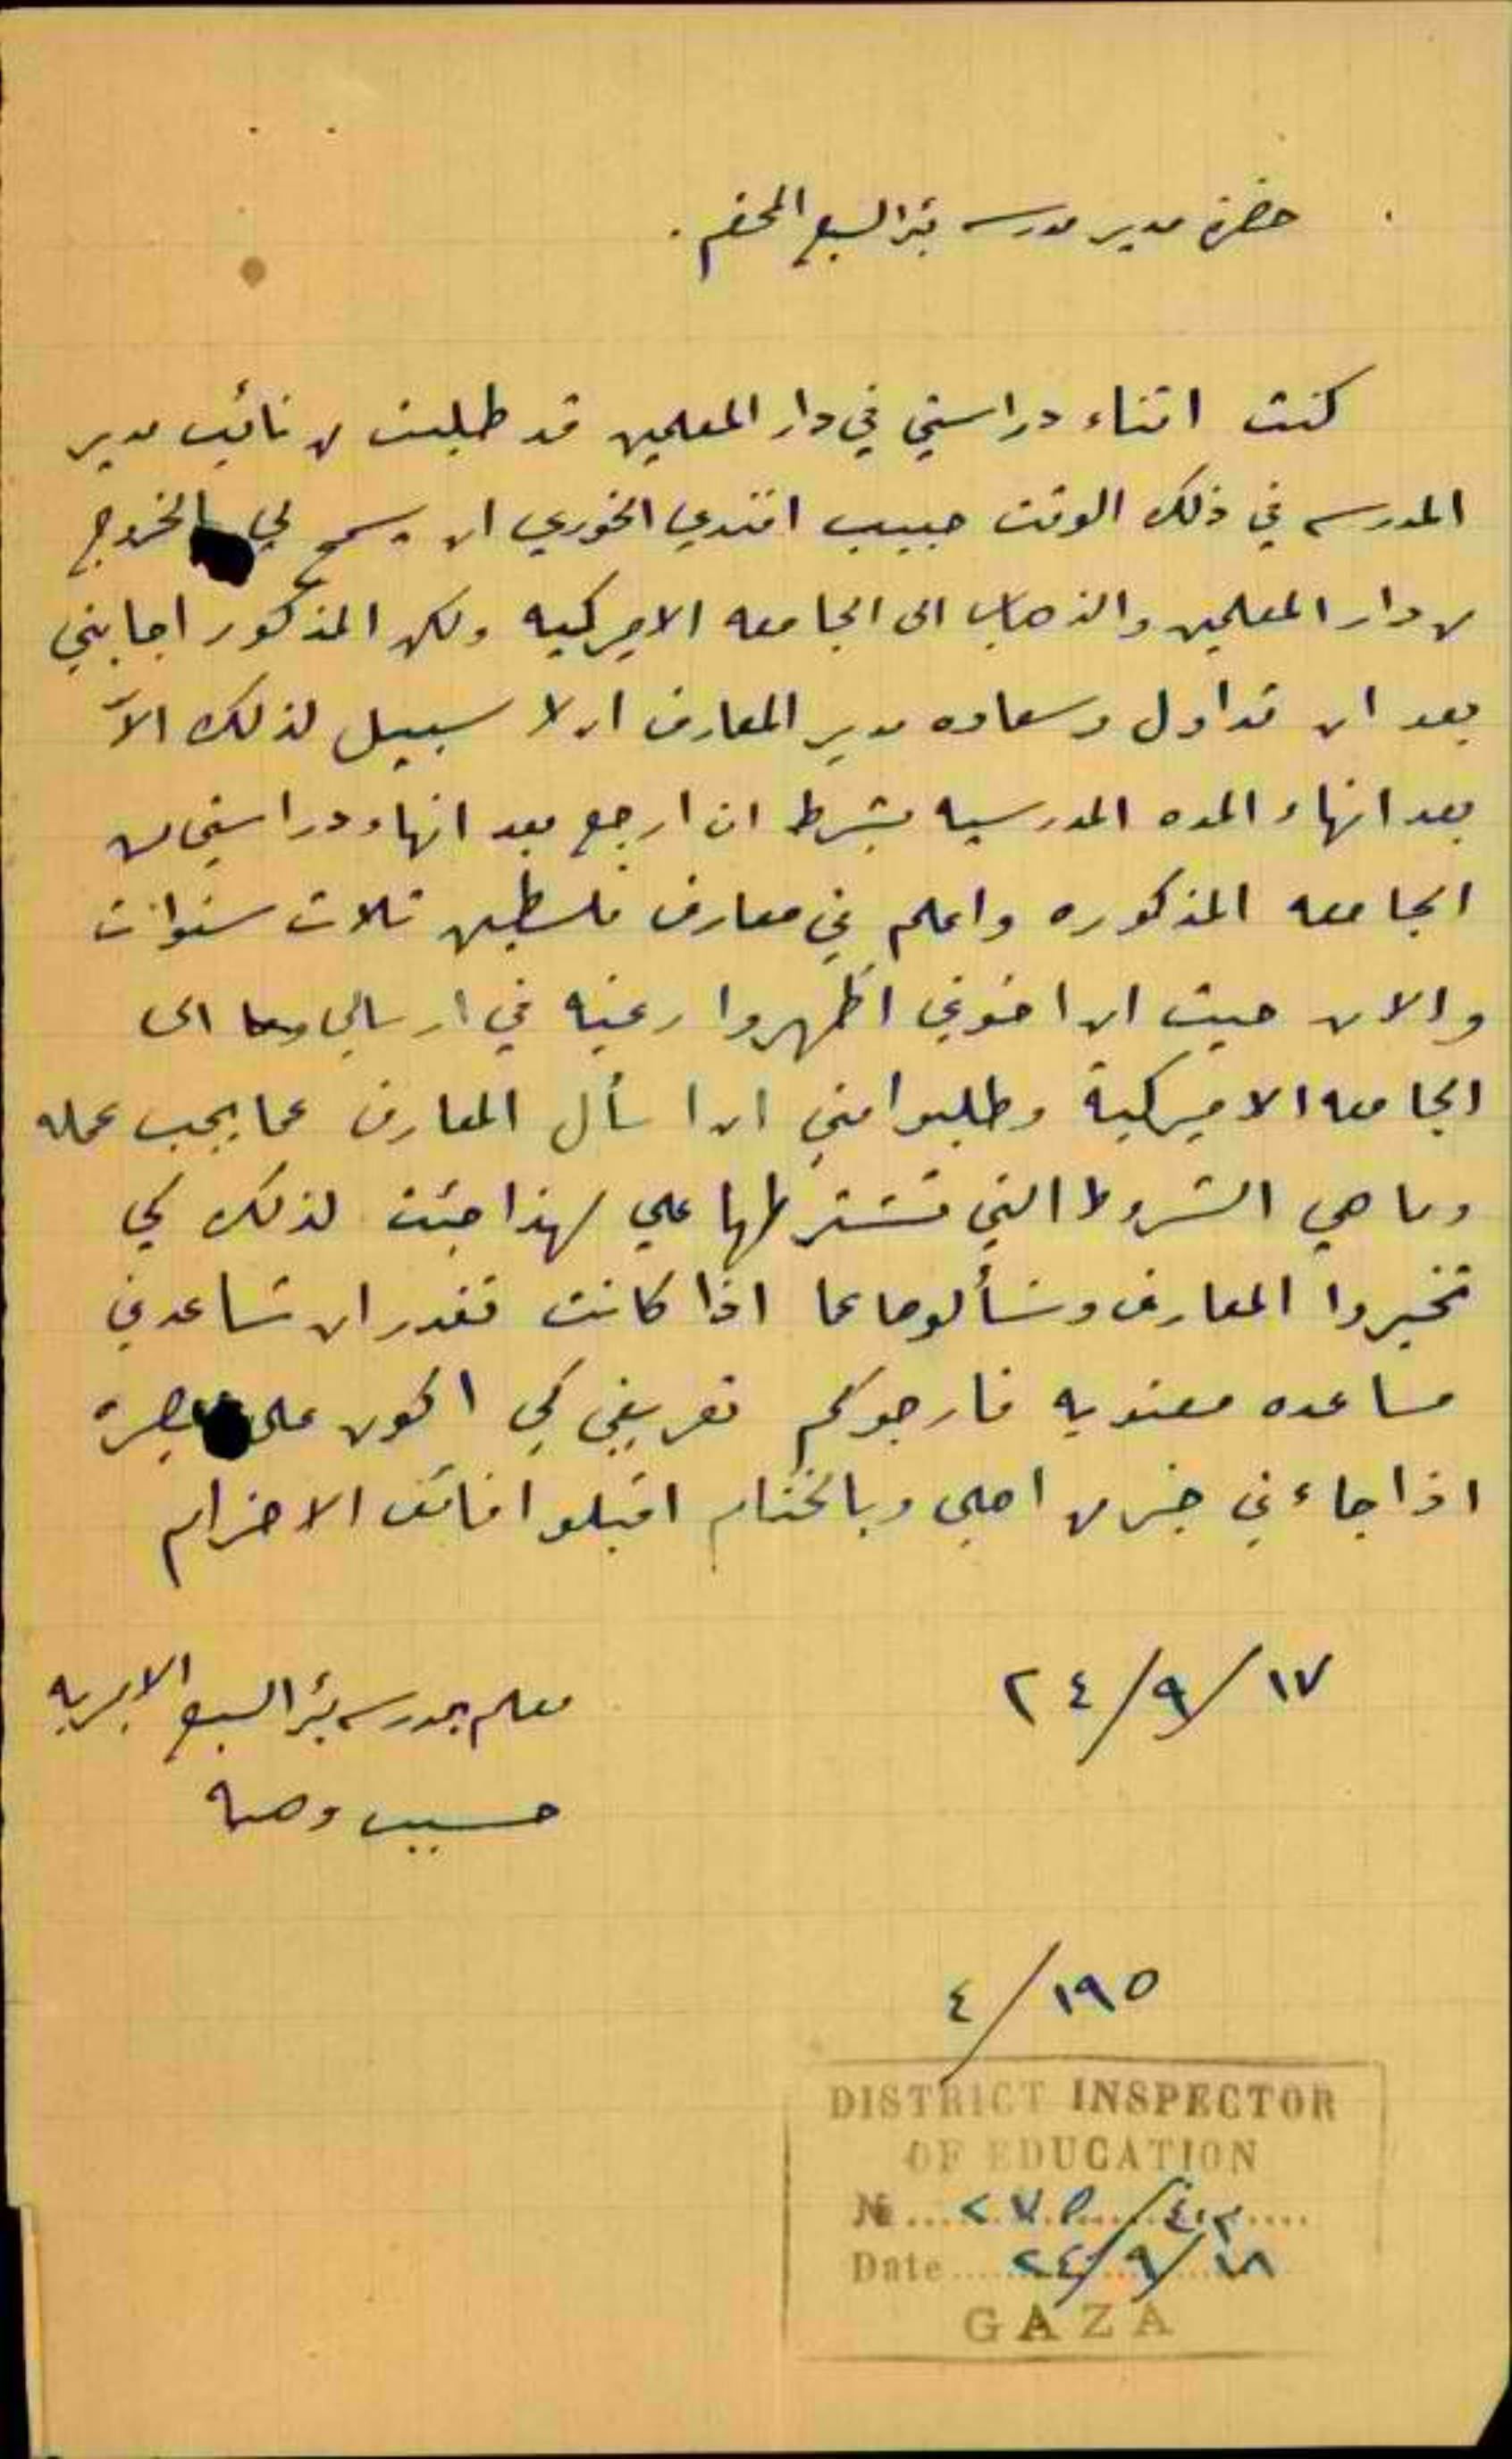 حضرة مدير مدرسه بئر السبع المحترم.
كنت اثناء دراستي في دار المعلمين قد طلبت من نائب مدير
المدرسه في ذلك الوقت حبيب افندي الخوري ان يسمح لي بالخروج
من دار المعلمين والذهاب الى الجامعه الاميركيه ولكن المذكور اجابني
بعد ان تداول وسعاده مدير المعارف ان لا سبيل لذلك الّا
بعد انهاء المده المدرسيه بشرط ان ارجع بعد انهاء دراستي من
الجامعه المذكوره واعلم في معارف فلسطين ثلاث سنوات
والان حيث ان اخوتي اظهروا رغبه في ارسالي الى
الجامعه الاميركية وطلبوا مني ان اسأل المعارف عما يجب عمله
وما هي الشروط التي تشترطها علي لهذا جئت لذلك كي
تخبروا المعارف وتسألوها عما اذا كانت تقدر ان تساعدني
مساعده معنويه فارجوكم تعريفي كي اكون على بصيرة
اذا جاءني خبر من اهلي وبالختام اقبلوا فائق الاحترام
١٧/٩/٢٤
معلم بمدرسه بئر السبع الاميريه
حسيب وهبه
١٩٥/٤
DISTRICT INSPECTOR
OF EDUCATION
№ ... ٤٠٣/٢٧٥
Date ... ١٨/٩/٢٤
GAZA